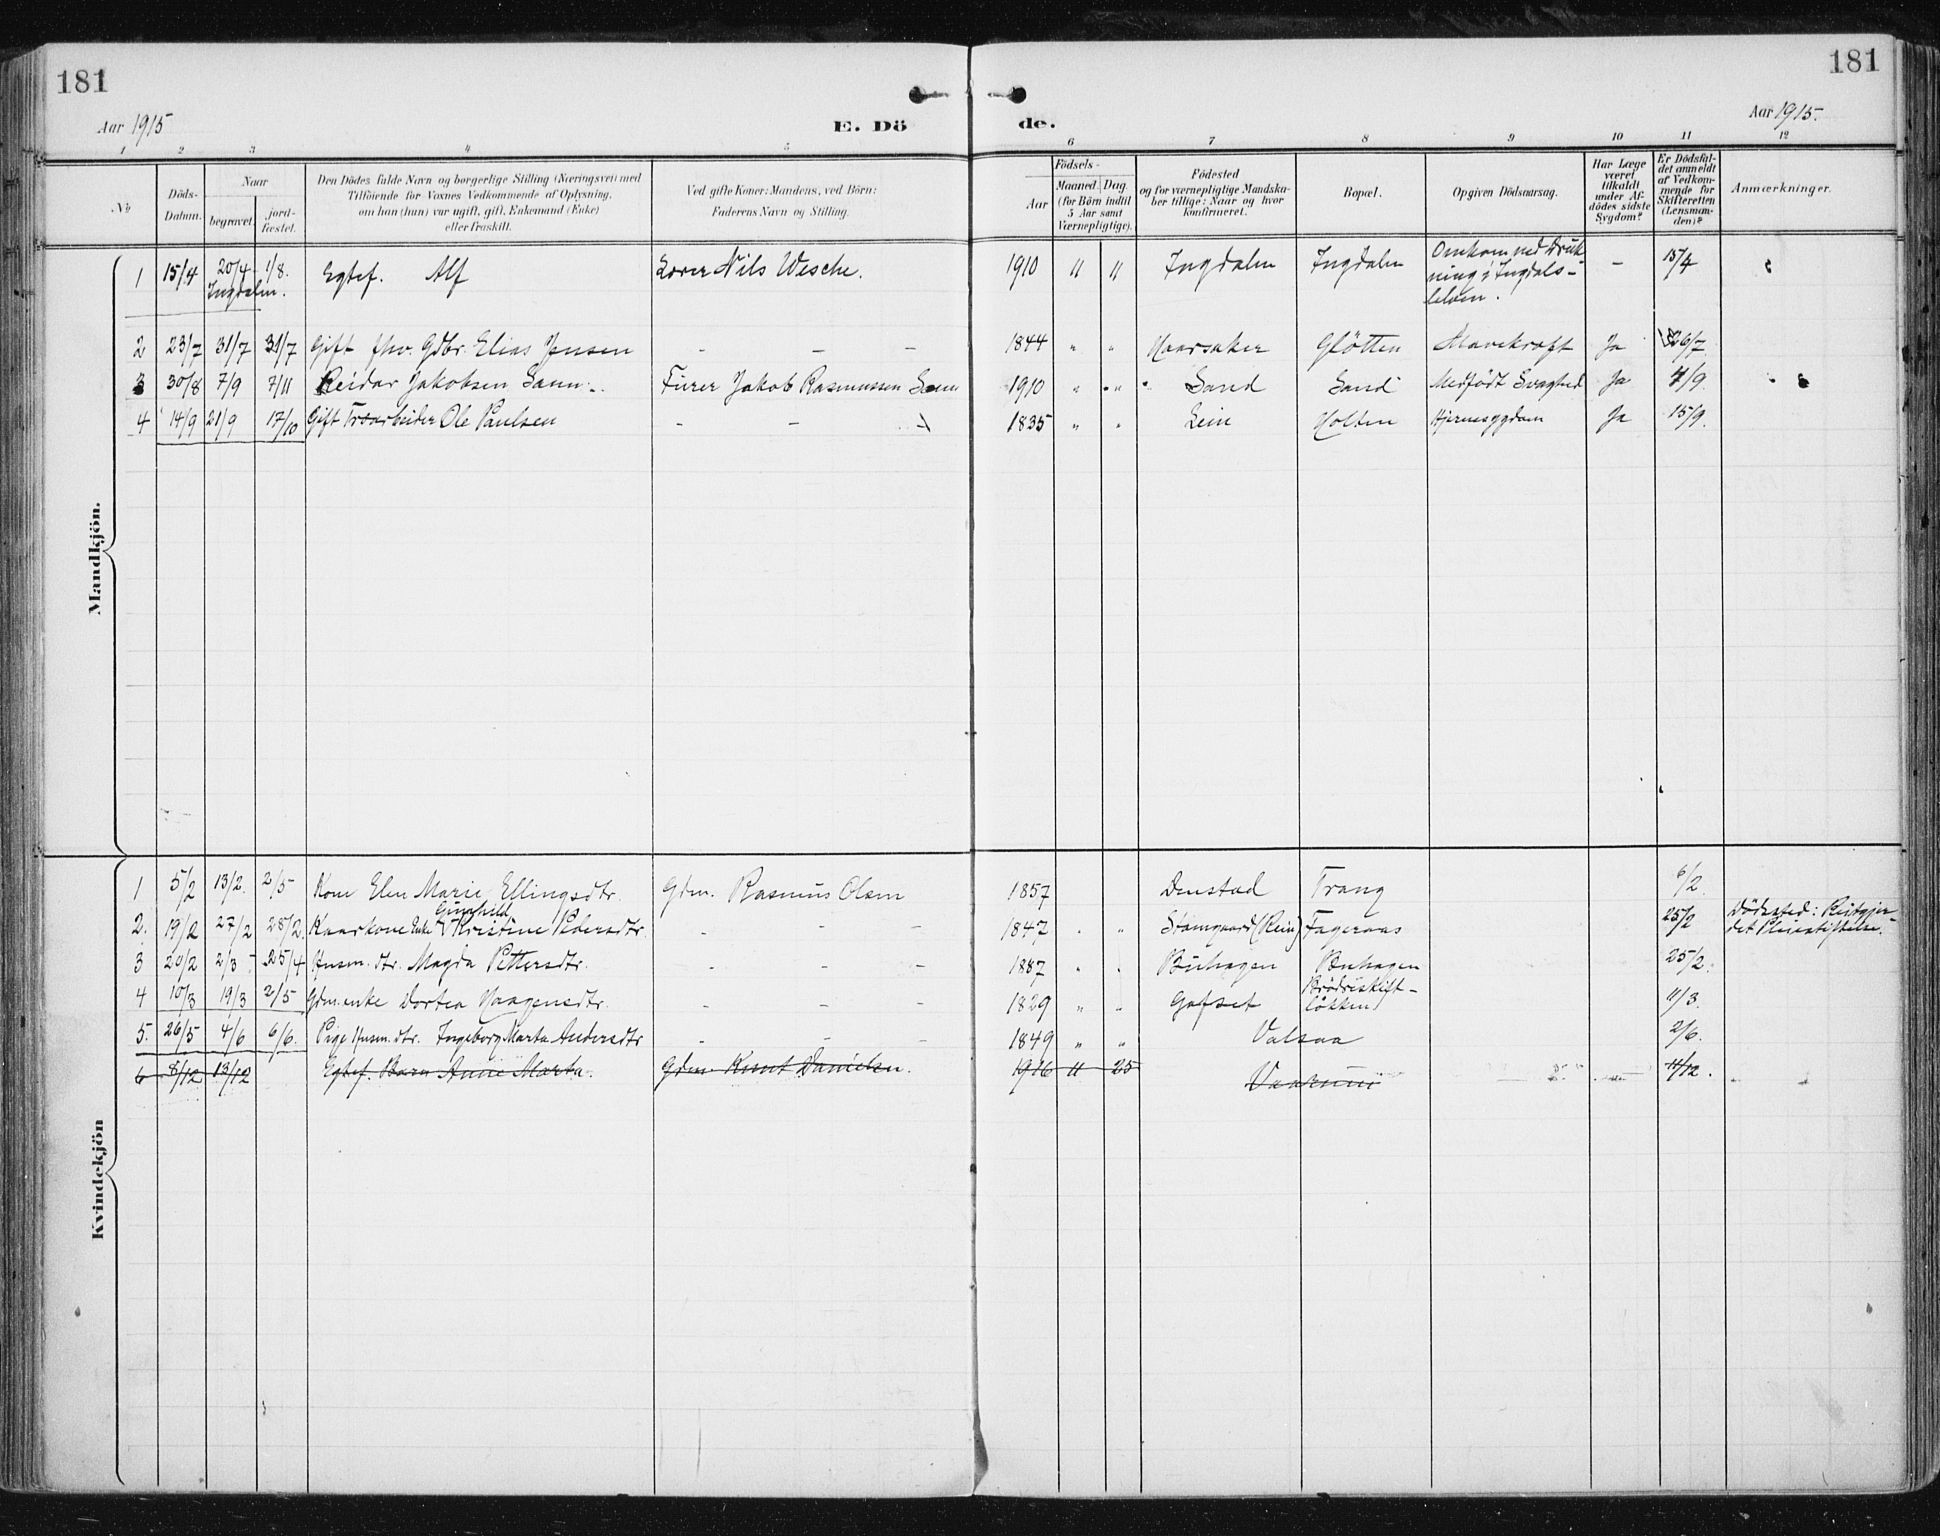 181
181
Aar 1915
E. Dö
de.
Aar 1915.
1 2 3 4 5 6 7 8 9 10 11 12
No
Döds-
Datum.
Naar
begravet.
jord-
fæstet.
Den Dödes fulde Navn og borgerlige Stilling (Næringsvei) med
Tilföiende for Voxnes Vedkommende af Oplysning,
om han (hun) var ugift, gift, Enkemand (Enke)
eller fraskilt.
Ved gifte Koner: Mandens, ved Börn:
Faderens Navn og Stilling.
Födsels-
Aar
Maaned. Dag.
(for Börn indtil
5 Aar samt
Værnepligtige).
Födested
og for værnepligtige Mandska-
ber tillige: Naar og hvor
konfirmeret.
Bopæl.
Opgiven Dödsaarsag.
Har Læge
været
tilkaldt
under Af-
dödes sidste
Sygdom?
Er Dödsfal-
det anmeldt
af Vedkom-
mende for
Skifteretten
(Lensman-
den)?
Anmærkninger.
Mandkjön.
1 15/4 20/4 1/8. Egtef. Alf Nils Wesche. 1910 " " Ingdalen Ingdalen Omkom ved Druk- – 15/4
Ingdalen. ning i Ingdals-
elven.
2 23/7 31/7 31/7 Gift fhv. Gdbr. Elias Jensen - – – 1844 " " Haarsaker Glötten Mavekraft Ja 26/7
3 30/8 7/9 7/11 Reidar Jakobsen Sann - Furer Jakob Rasmussen Sann 1910 " " Sand Sand Medfödt Svaghed Ja 4/9.
4 14/9 21/9 17/10 Gift Ole Paulsen - – 1835 " " Lein Holten Hjernesygdom Ja 15/9.
Kvindekjön
1 5/2 13/2. 2/5 Kone Elen Marie Ellingsdtr. Gdm. Rasmus Olsen 1857 Denstad Trang 6/2.
Gunhild
2. 19/2 27/2 28/2. Kaarkone Enke Kristine Pedersdtr. - - – 1847 " " Stamgaard (Rein) Fageraas 25/2 Dödssted: Reitgjer-
det Pleiestiftelse.
3 20/2 2/3 25/4 Husm. dtr. Magda Pettersdtr. - - – 1887 " " Buhagen Buhagen 25/2.
4 10/3 19/3 2/5 Gdm.enke Dortea Haagensdtr. - - – 1829 " " Gafset Brödreskift-
lökken 11/3.
5. 26/5 4/6 6/6. Pige Husm. dtr. Ingeborg Marta Andersdtr - - – 1849 " " Valsaa 2/6.
6 8/12 13/12 Egtef. Barn Anne Marta. Gdm. Knut Danielsen. 1916 11 25 11/12.